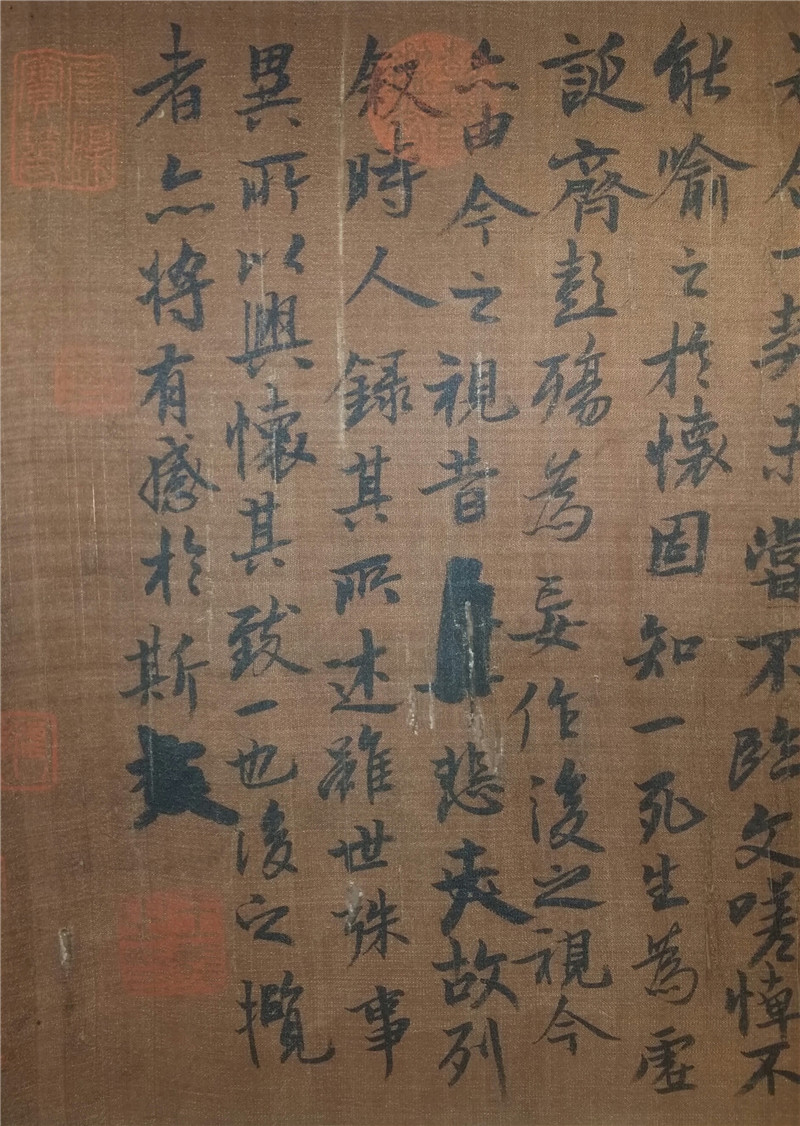 若合一契未嘗不臨文嗟悼不
能喻之於懷固知一死生為虛
誕齊彭殤為妄作後之視今
亦由今之視昔悲夫故列
叙時人録其所述雖世殊事
異所以興懷其致一也後之攬
者亦將有感於斯文